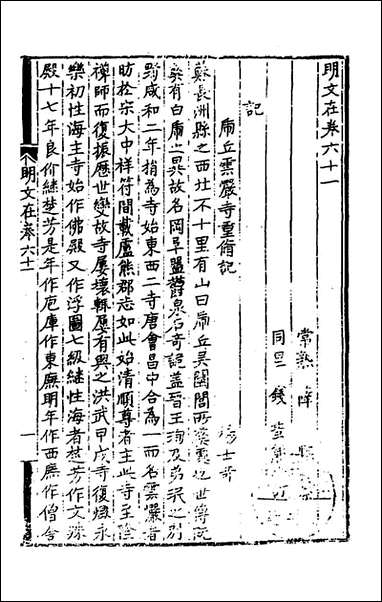 明文在卷六十一
常熟 薛
同里 錢
記
虎丘雲巖寺重脩記
楊士奇
蘇長洲縣之西北不十里有山曰虎丘吳闔閭所葬處也世傳既
葬有白虎之異故名岡阜盤鬱泉石奇詭蓋晉王珣及弟珉之別
墅咸和二年捐為寺始東西二寺唐會昌中合為一而名雲巖者
昉於宋大中祥符間載盧熊郡志如此始清順尊者主此寺至隆
禪師而復振歷世變故寺屢壞輒屢有興之洪武甲戌寺復燬永
樂初性海主寺始作佛殿又作浮圖七級繼性海者楚芳作文殊
殿十七年良价繼楚芳是年作庖庫作東廡明年作西廡作僧舍
明文在卷六十一
一